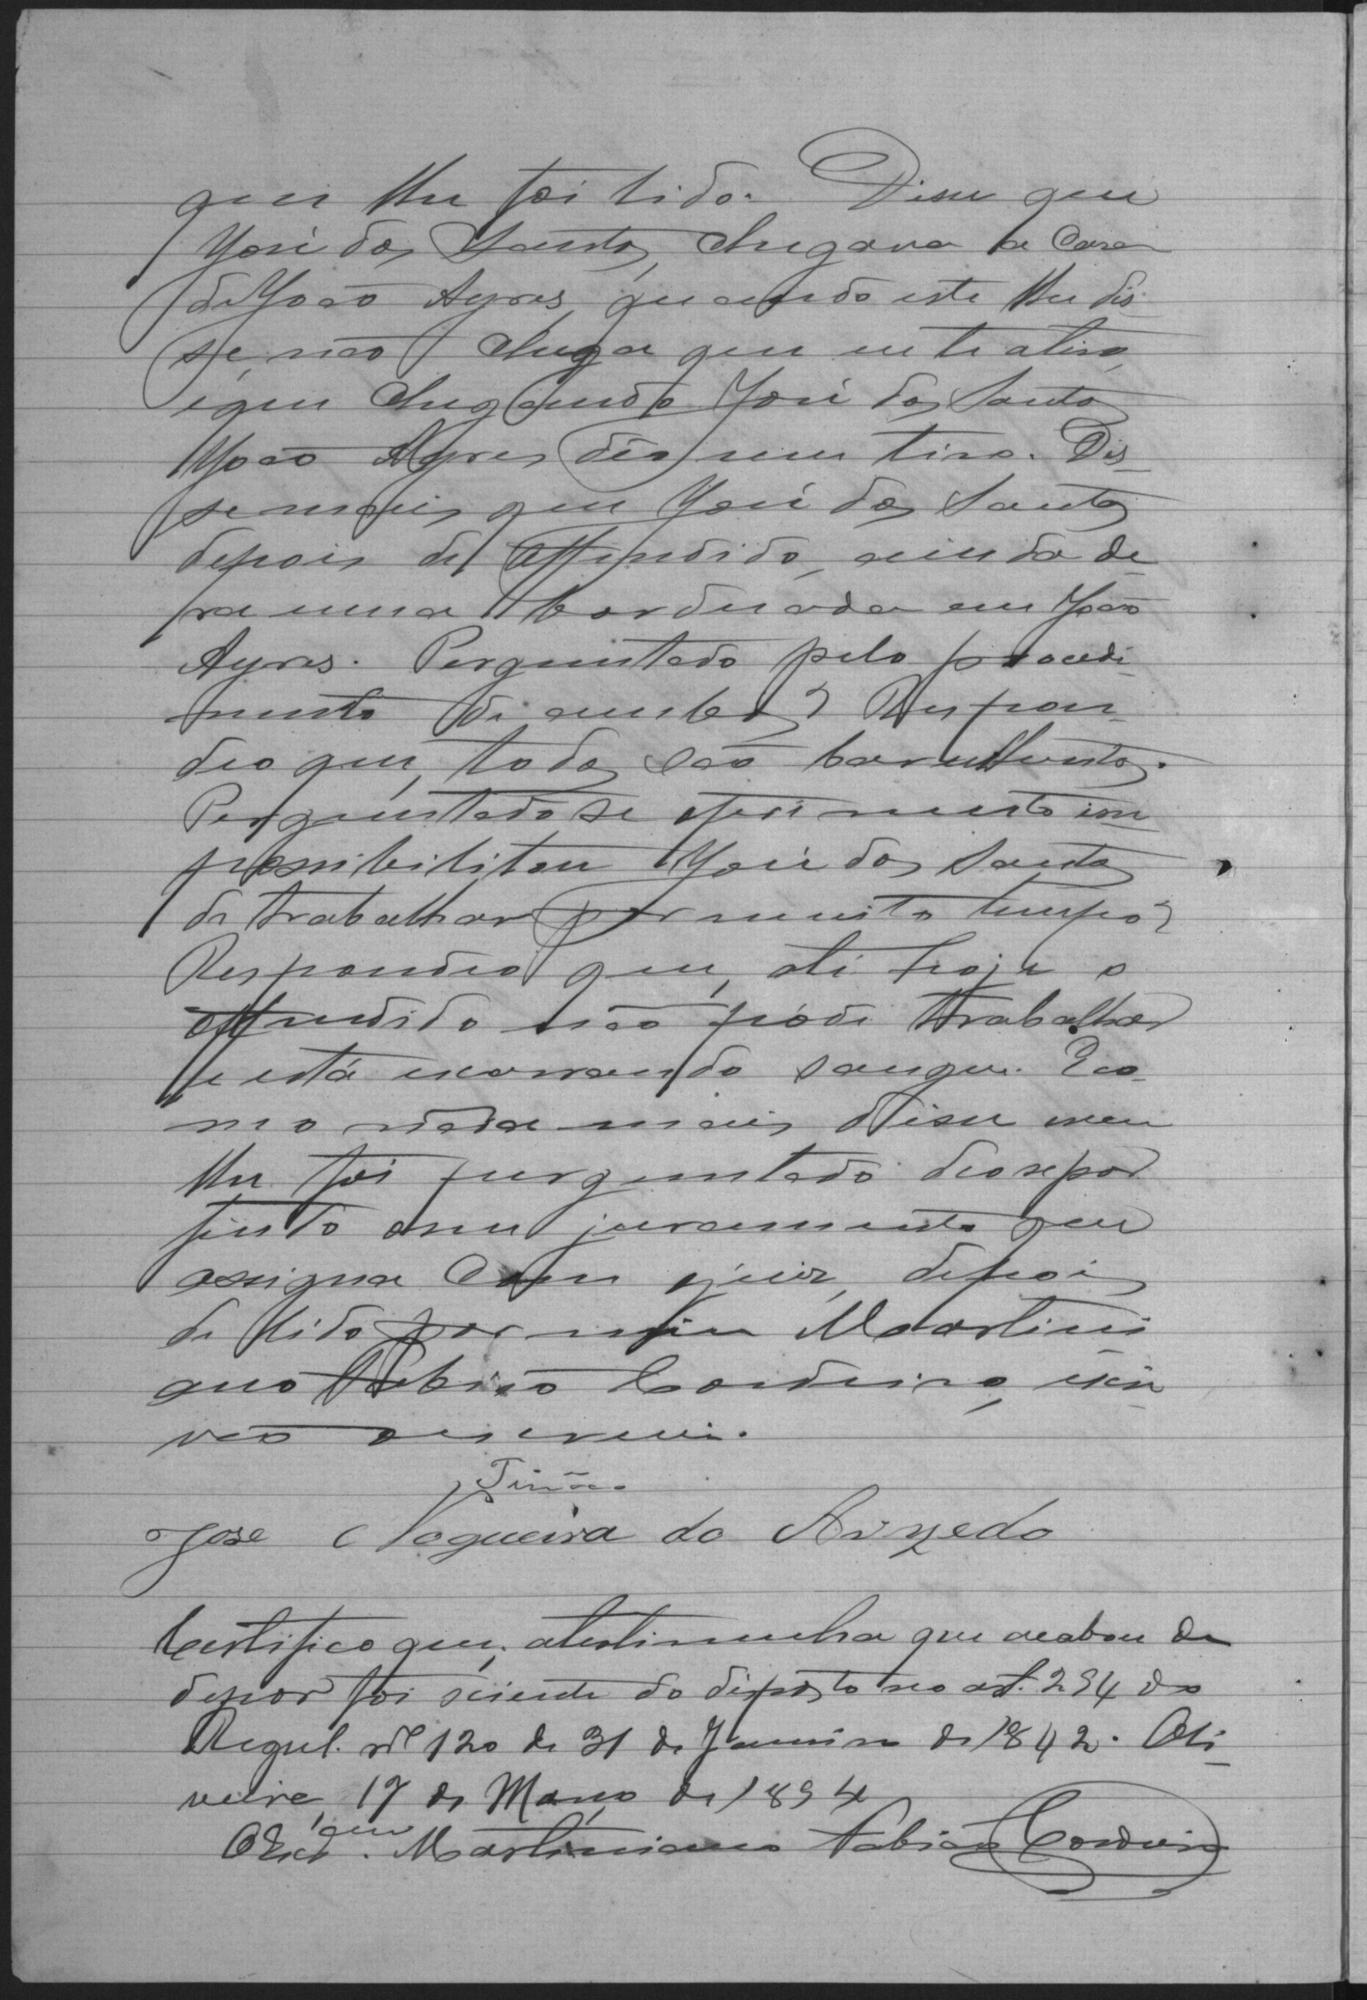 que lhe foi lido. Disse que
José dos Santos, chegava a casa
de João Ayres, quando este lhe dis-
se, não chega que eu te atiro,
e que chegando José dos Santos
João Ayres deo um tiro. Dis-
se mais que José dos Santos
depois de offendido, ainda de-
ra uma bordoada em João
Ayres. Perguntado pelo procedi-
mento de ambos? Respon-
deo que, todos são barulhentos.
Perguntado se o ferimento im-
possibilitou José dos Santos
de trabalhar por muito tempo?
Respondeo que, até hoje o
offendido não póde trabalhar
e está escarrando sangue. E co-
mo nada mais disse nem
lhe foi perguntado deo se por
findo o seu juramento que
assigna com o juiz, depois
de lido por mim Martini
ano Fabião Cordeiro, escri
vão o escrevi.
José Nogueira de Azevedo
Certifico que, a testimunha que acabou de
depor foi sciente do disposto no art. 294 do
Regul. nº 120 de 31 de Janeiro de 1842. Oli-
veira, 17 de Março de 1894
O Escrivam. Martiniano Fabião Cordeiro